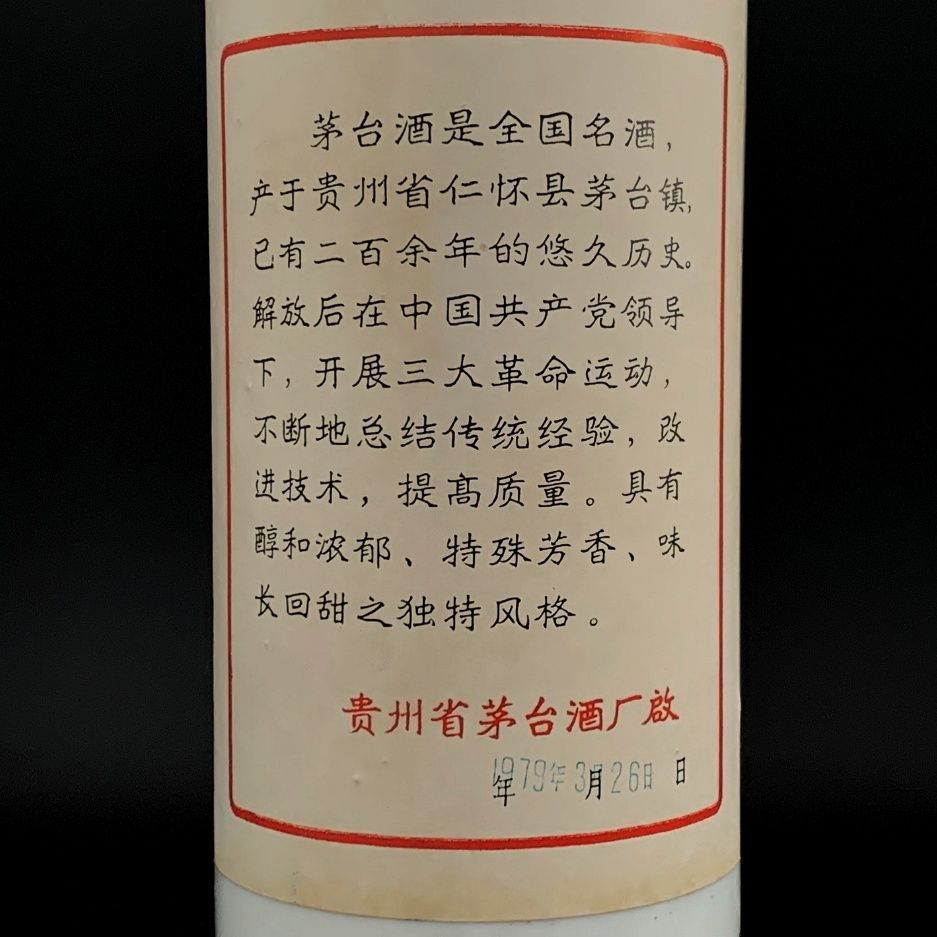 茅台酒是全国名酒，
产于贵州省仁怀县茅台镇，
已有二百余年的悠久历史。
解放后在中国共产党领导
下，开展三大革命运动，
不断地总结传统经验，改
进技术，提高质量。具有
醇和浓郁、特殊芳香、味
长回甜之独特风格。
贵州省茅台酒厂啟
1979年3月26日
年 月 日